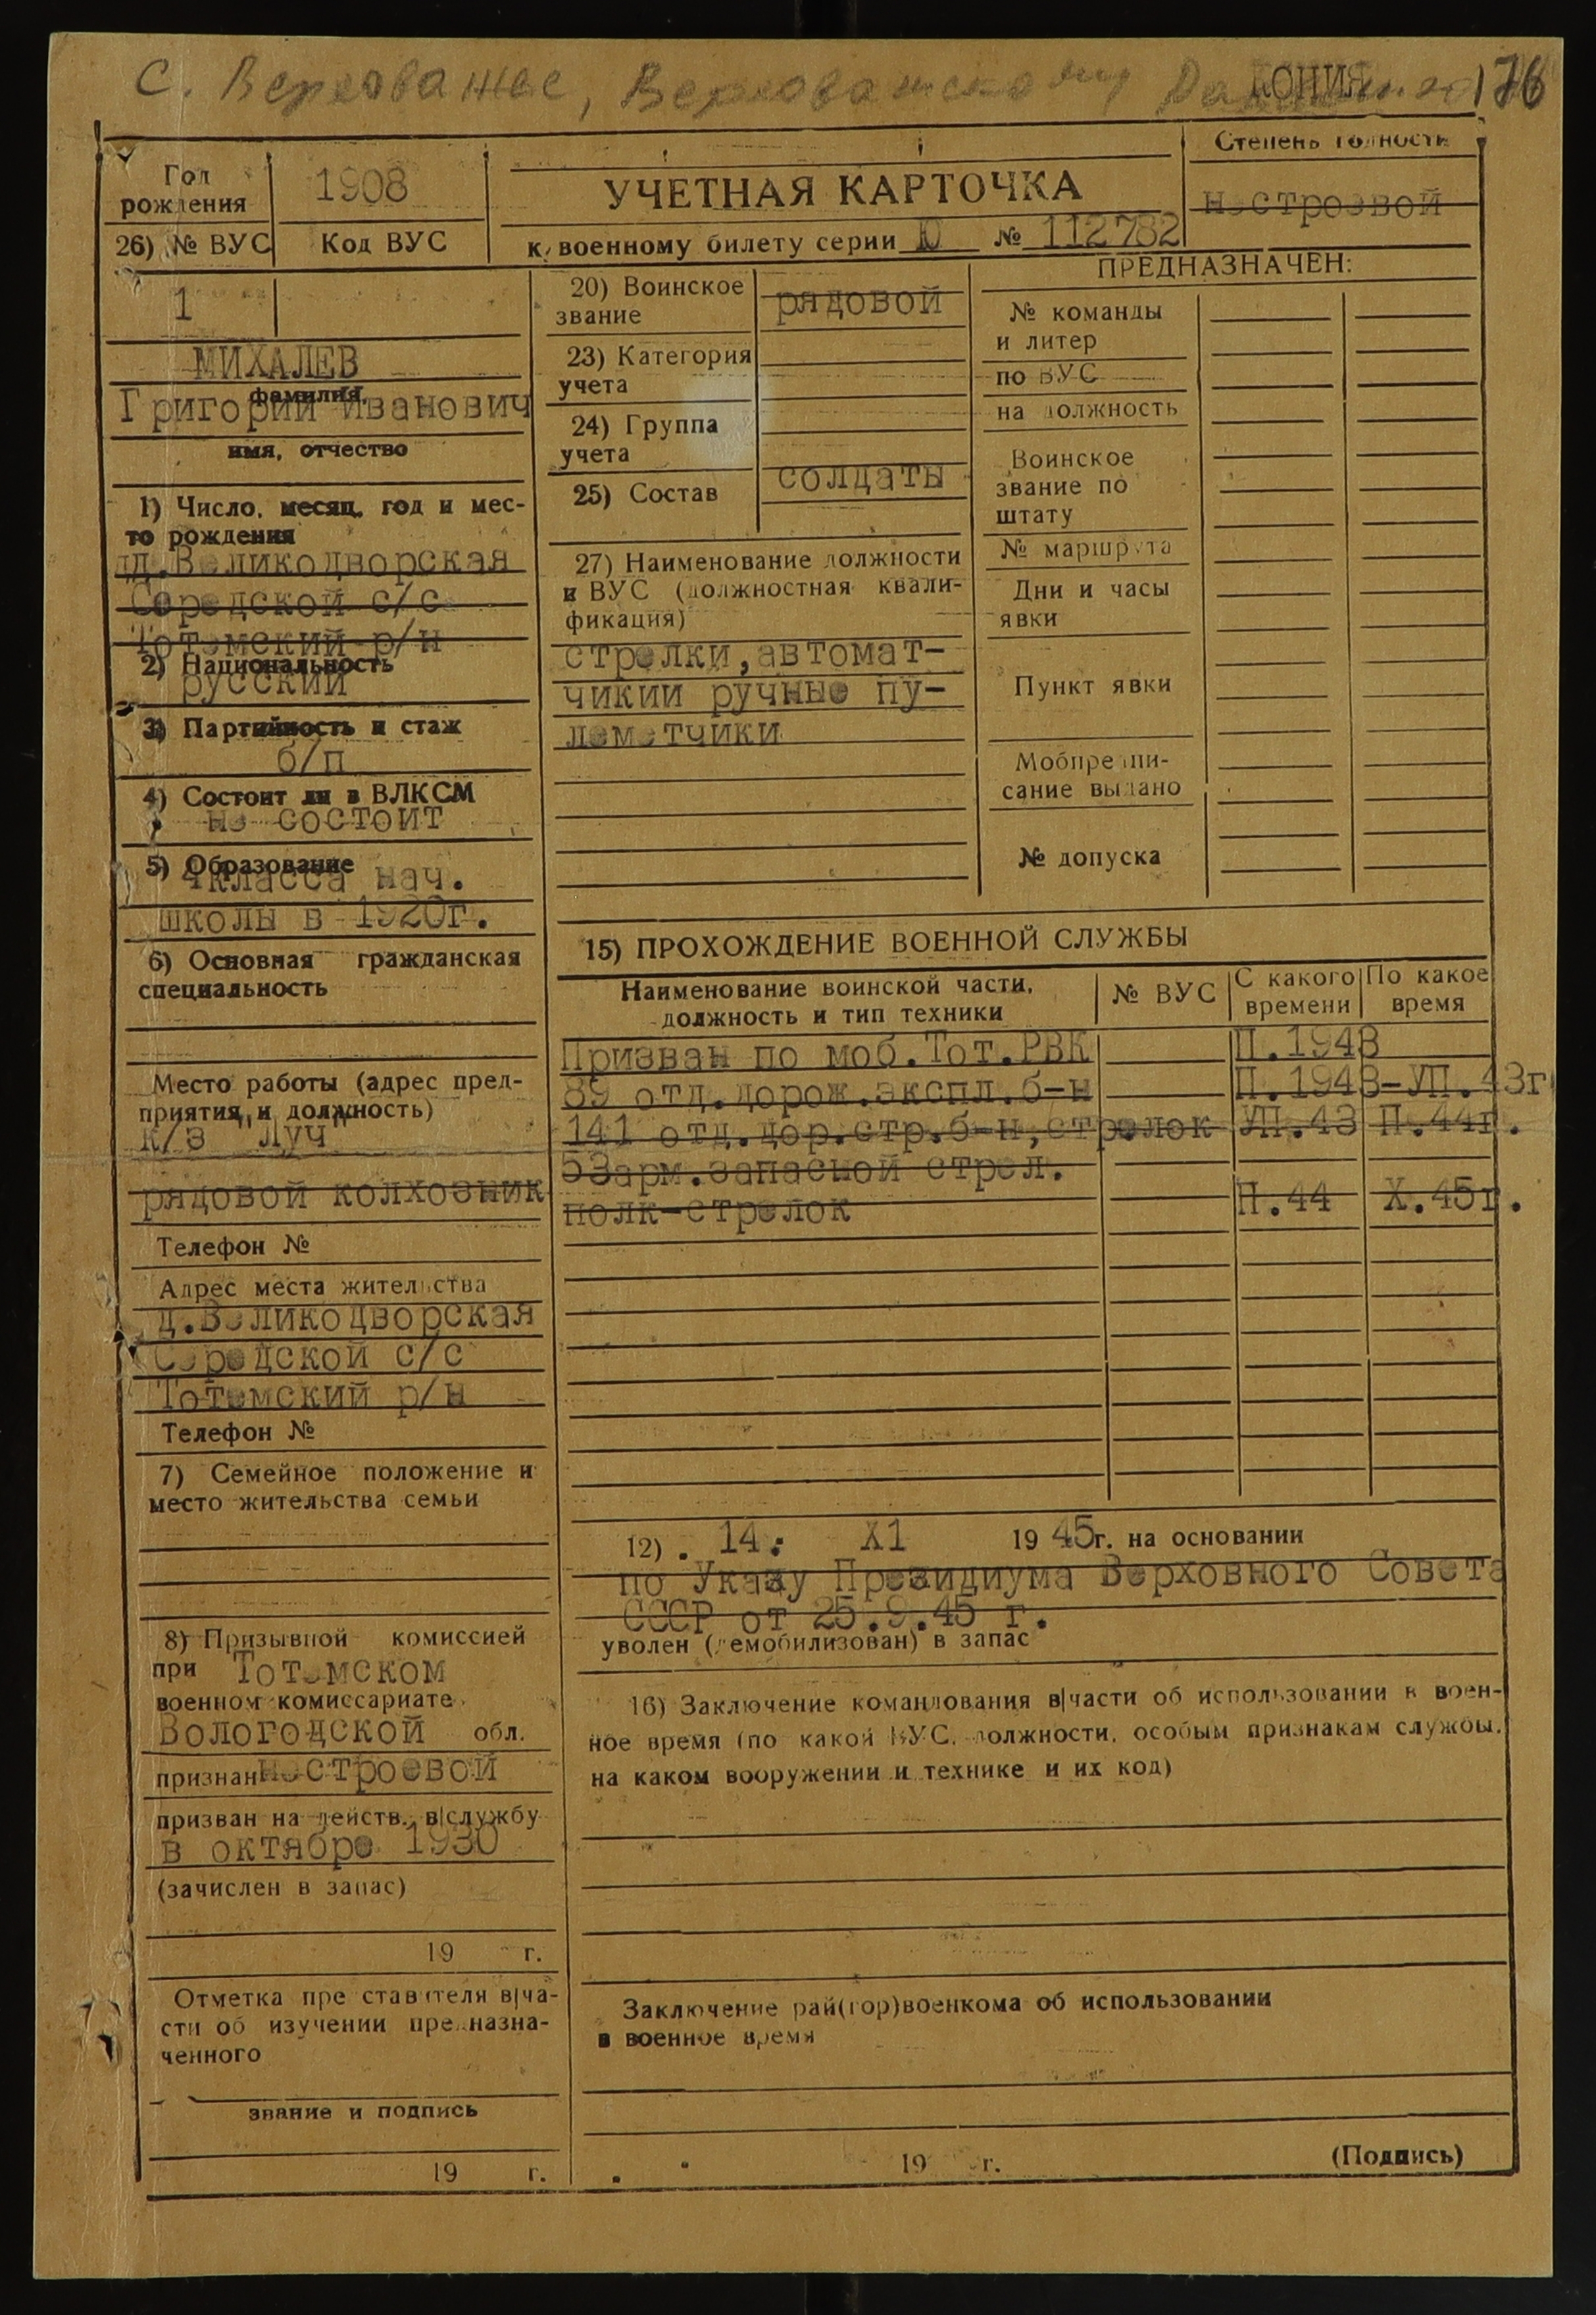 С. Верховажье, Верховажского
КОПИЯ 176
Год
рождения
1908
26) № ВУС
Код ВУС
1
УЧЕТНАЯ КАРТОЧКА
к военному билету серии Ю № 112782
Степень годности
нестроевой
МИХАЛЕВ
фамилия,
Григорий Иванович
имя, отчество
1) Число, месяц, год и мес-
то рождения
д.Великодворская
Середской с/с
Тотемский р/н
2) Национальность
русский
3) Партийность и стаж
б/п
4) Состоит ли в ВЛКСМ
не состоит
5) Образование
4класса нач.
школы в 1920г.
6) Основная гражданская
специальность
Место работы (адрес пред-
приятия и должность)
к/з "Луч"
рядовой колхозник
Телефон №
Адрес места жительства
д.Великодворская
Середской с/с
Тотемский р/н
Телефон №
7) Семейное положение и
место жительства семьи
8) Призывной комиссией
при Тотемском
военном комиссариате
Вологодской обл.
признан нестроевой
призван на действ. в|службу
в октябре 1930
(зачислен в запас)
19 г.
Отметка представителя в|ча-
сти об изучении предназна-
ченного
звание и подпись
19 г.
20) Воинское
звание
рядовой
23) Категория
учета
24) Группа
учета
25) Состав
солдаты
27) Наименование должности
и ВУС (должностная квали-
фикация)
стрелки,автомат-
чикии ручные пу-
леметчики
ПРЕДНАЗНАЧЕН:
№ команды
и литер
по ВУС
на должность
Воинское
звание по
штату
№ маршрута
Дни и часы
явки
Пункт явки
Мобпредпи-
сание выдано
№ допуска
15) ПРОХОЖДЕНИЕ ВОЕННОЙ СЛУЖБЫ
Наименование воинской части,
должность и тип техники
№ ВУС
С какого
времени
По какое
время
Призван по моб.Тот.РВК П.1943
89 отд.дорож.экспл.б-н П.1943-УП.43г
141 отд.дор.стр.б-н,стрелок УП.43 П.44г.
53арм.запасной стрел.
полк-стрелок П.44 Х.45г.
12) . 14. Х1 19 45г. на основании
по Указу Президиума Верховного Совета
СССР от 25.9.45 г.
уволен (демобилизован) в запас
16) Заключение командования в|части об использовании в воен-
ное время (по какой ВУС, должности, особым признакам службы,
на каком вооружении и технике и их код)
Заключение рай(гор)военкома об использовании
в военное время
19 г.
(Подпись)